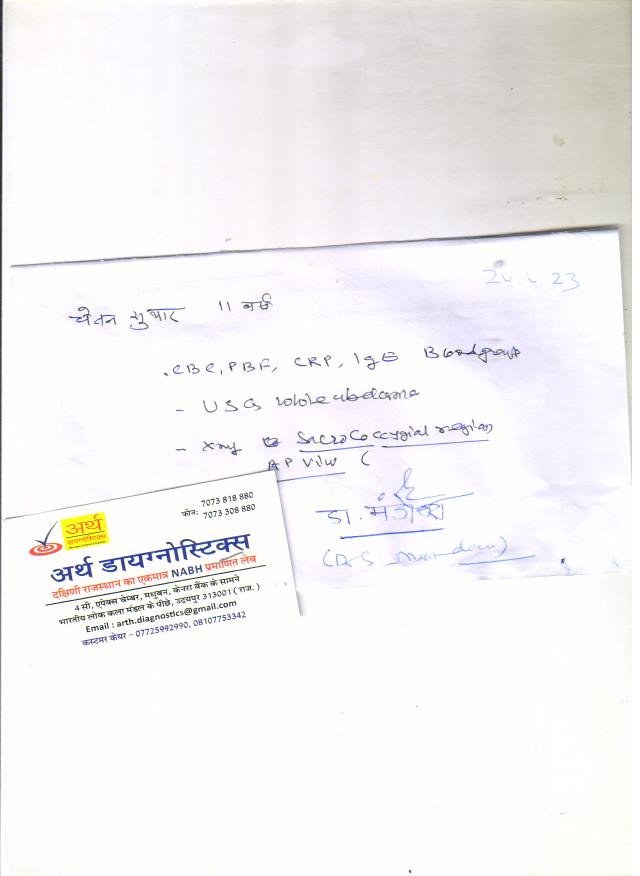 23
चेतन सुथार 11 वर्ष
. CBC, PBF, CRP, IgE Bloodgroup
- USG whole abdomen
- Xray Sacrococcygial region
AP View (
डा.
अर्थ
डायग्नोस्टिक्स
फोन: 7073 818 880
7073 308 880
अर्थ डायग्नोस्टिक्स
दक्षिणी राजस्थान का एकमात्र NABH प्रमाणित लेब
4 सी, एपेक्स चेम्बर, मधुबन, केनरा बैंक के सामने
भारतीय लोक कला मंडल के पीछे, उदयपुर 313001 ( राज. )
Email : arth.diagnostics@gmail.com
कस्टमर केयर – 07725992990, 08107753342